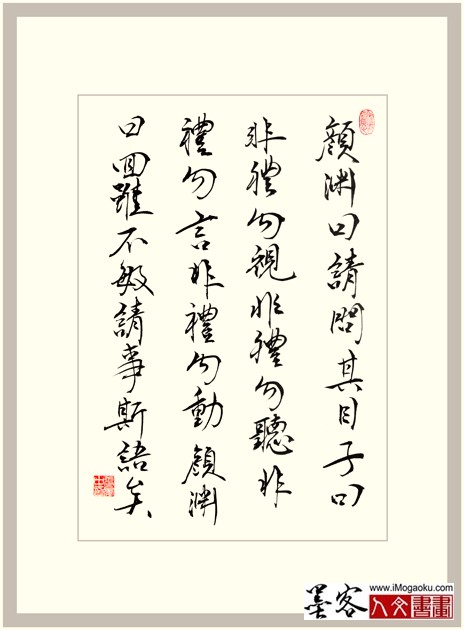 顏淵曰請問其目子曰
非禮勿視非禮勿聽非
禮勿言非禮勿動顏淵
曰回雖不敏請事斯語矣
墨客
www.iMogaoku.com
人文書畫